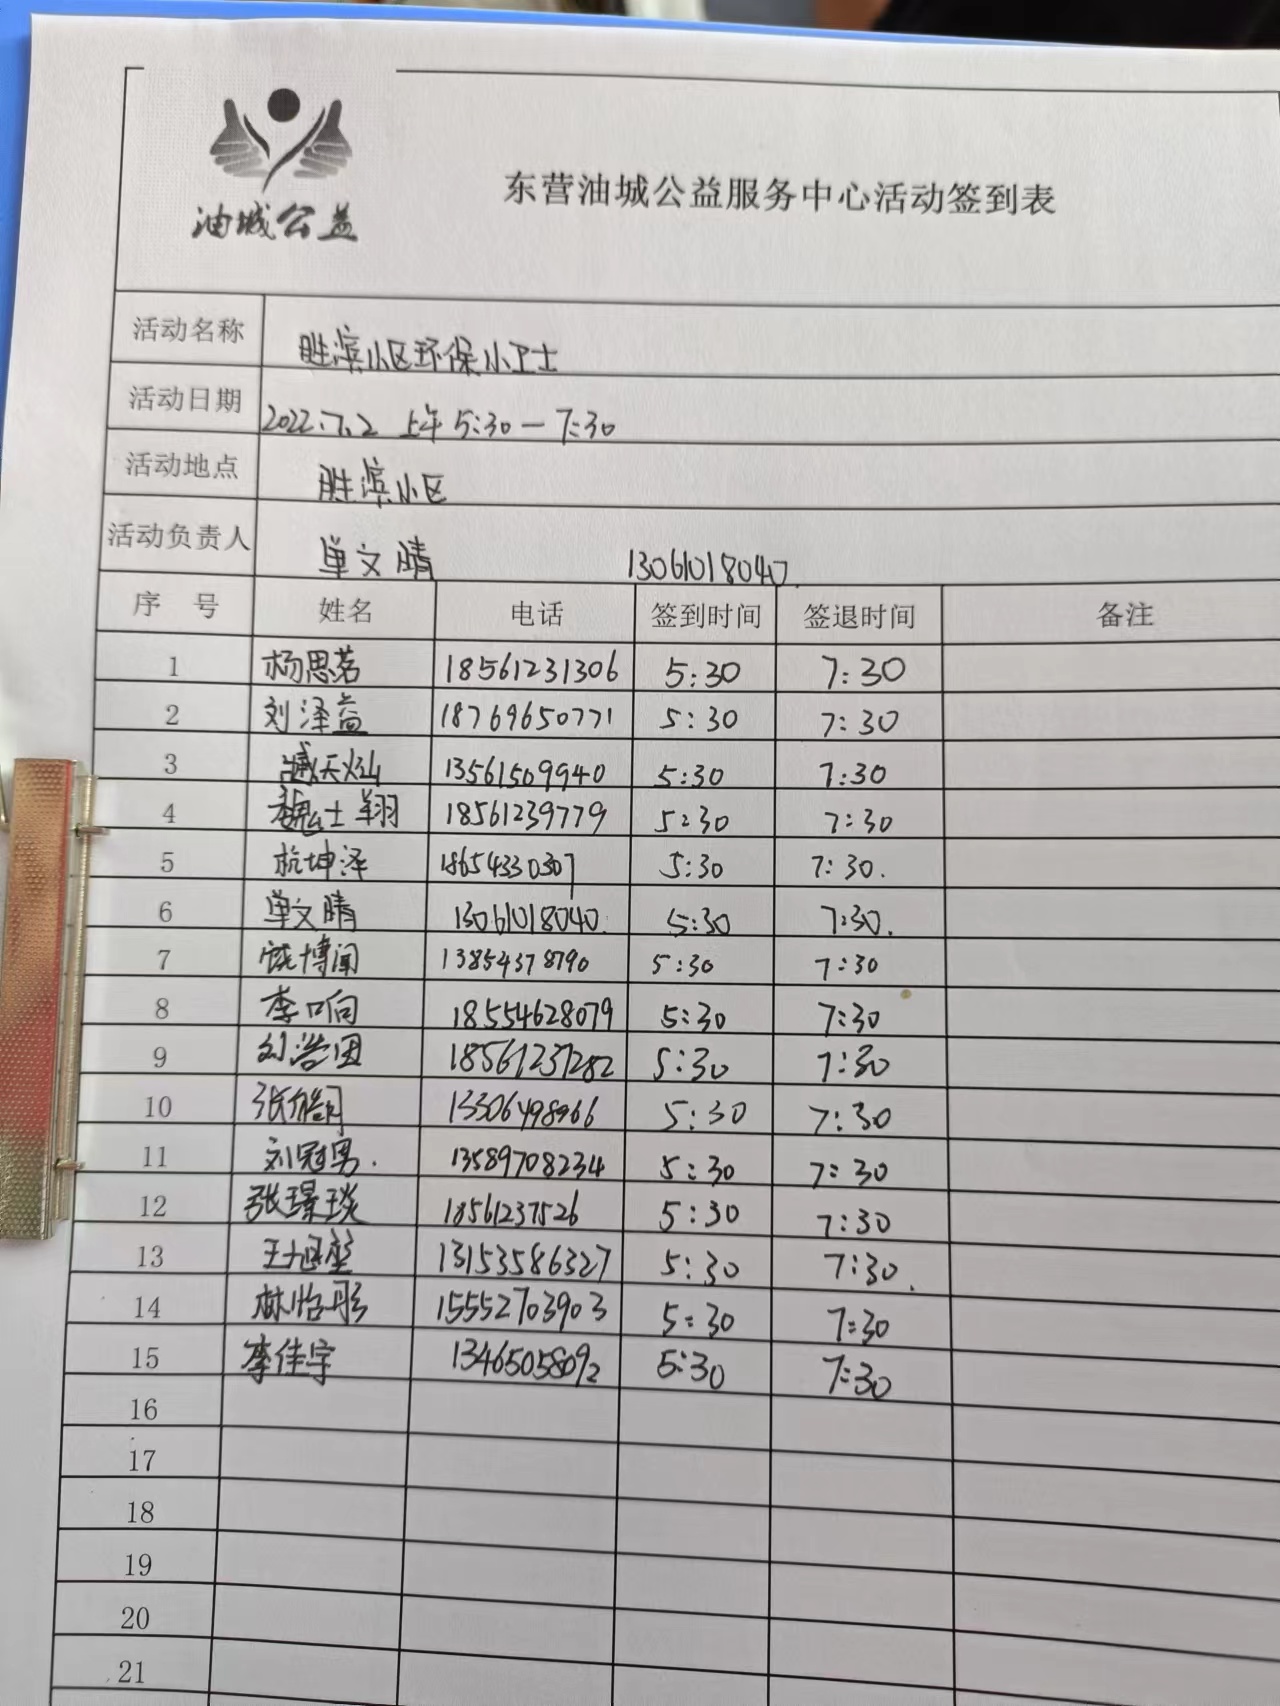 油城公益
东营油城公益服务中心活动签到表
活动名称 胜滨小区环保小卫士
活动日期 2022.7.2 上午 5:30—7:30
活动地点 胜滨小区
活动负责人 单文晴 13061018040.
序 号 姓名 电话 签到时间 签退时间 备注
1 杨思茗 18561231306 5:30 7:30
2 刘泽益 18769650771 5:30 7:30
3 臧天灿 13561509940 5:30 7:30
4 魏士翔 18561239779 5:30 7:30
5 杭坤泽 18654330307 5:30 7:30.
6 单文晴 13061018040. 5:30 7:30.
7 博闻 13854378790 5:30 7:30
8 李响 18554628079 5:30 7:30
9 刘浩因 18561237282 5:30 7:30
10 张皓月 13306498966 5:30 7:30
11 刘冠男. 13589708234 5:30 7:30
12 张璟琰 18561237526 5:30 7:30
13 王旭 13153586327 5:30 7:30.
14 林怡彤 15552703903 5:30 7:30
15 李佳宇 13465058092 5:30 7:30
16
17
18
19
20
21